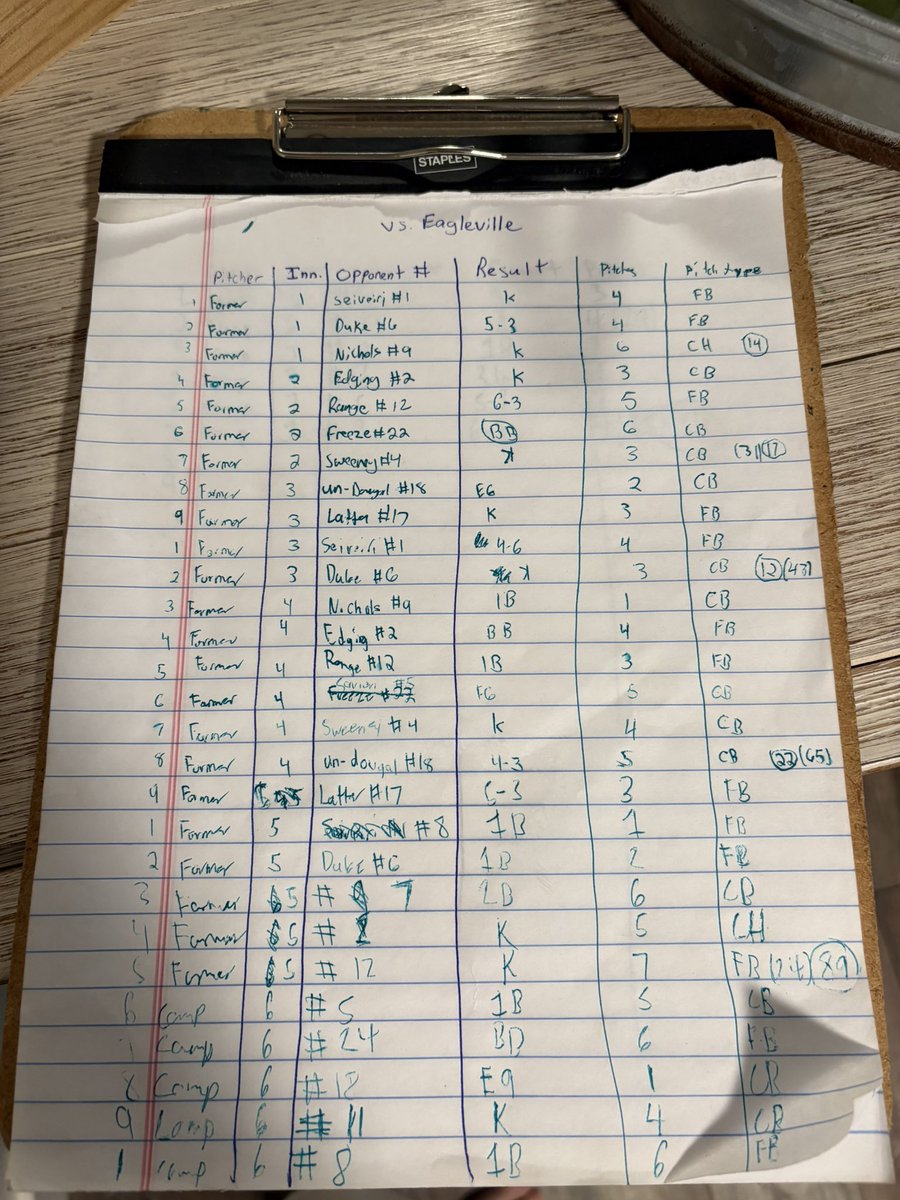 STAPLES
vs. Eagleville
Pitcher Inn. Opponent # Result Pitches Pitch type
1 Farmer 1 Seiveirj #1 K 4 FB
2 Farmer 1 Duke #6 5-3 4 FB
3 Farmer 1 Nichols #9 K 6 CH 14
4 Farmer 2 Edging #2 K 3 CB
5 Farmer 2 Range #12 6-3 5 FB
6 Farmer 2 Freeze #22 BB 6 CB
7 Farmer 2 Sweeney #4 K 3 CB (31) 17
8 Farmer 3 un-Dougal #18 E6 2 CB
9 Farmer 3 Latter #17 K 3 FB
1 Farmer 3 #1 4-6 4 FB
2 Farmer 3 Duke #6 K 3 CB 12 (43)
3 Farmer 4 Nichols #9 1B 1 CB
4 Farmer 4 Edging #2 BB 4 FB
5 Farmer 4 Range #12 1B 3 FB
6 Farmer 4 #5 5 CB
7 Farmer 4 Sweeney #4 K 4 CB
8 Farmer 4 un-dougal #18 4-3 5 CB 22 (65)
9 Farmer Latter #17 3 FB
1 Farmer 5 #8 1B 1 FB
2 Farmer 5 Duke #6 1B 2 FB
3 Farmer 5 # 7 6 CB
4 Farmer 5 # K 5 CH
5 Farmer 5 #12 K 7 FB (24) 89
6 Camp 6 #5 1B 5 CB
7 Camp 6 #24 6 FB
8 Camp 6 #12 E9 1 CB
9 Camp 6 #11 K 4 CB
1 Camp 6 #8 1B 6 FB